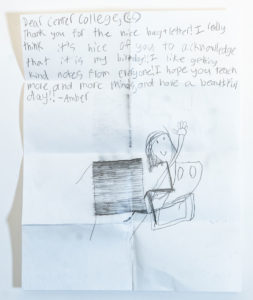 Dear Center College,
Thank you for the nice bag & letter! I really
think it's nice of you to acknowledge
that it is my birthday! I like getting
kind notes from everyone! I hope you teach
more and more minds and have a beautiful
day!! -Amber